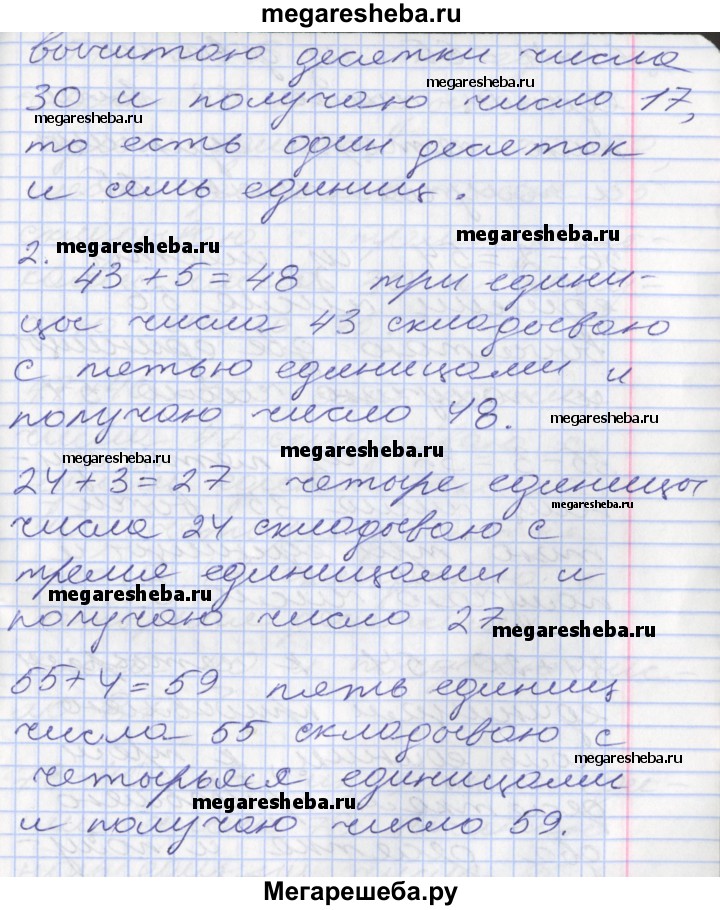 megaresheba.ru
вычитаю десятки числа
megaresheba.ru
30 и получаю число 17,
megaresheba.ru
то есть один десяток
и семь единиц.
megaresheba.ru
2. megaresheba.ru
43 + 5 = 48 три едини-
цы числа 43 складываю
с петью единицами и
получаю число 48.
megaresheba.ru
megaresheba.ru
megaresheba.ru
24 + 3 = 27 четыре единицы
megaresheba.ru
числа 24 складываю с
тремя единицами и
megaresheba.ru
получаю число 27.
megaresheba.ru
55 + 4 = 59 пять единиц
числа 55 складываю с
megaresheba.ru
четырьмя единицами
megaresheba.ru
и получаю число 59.
Мегарешеба.ру